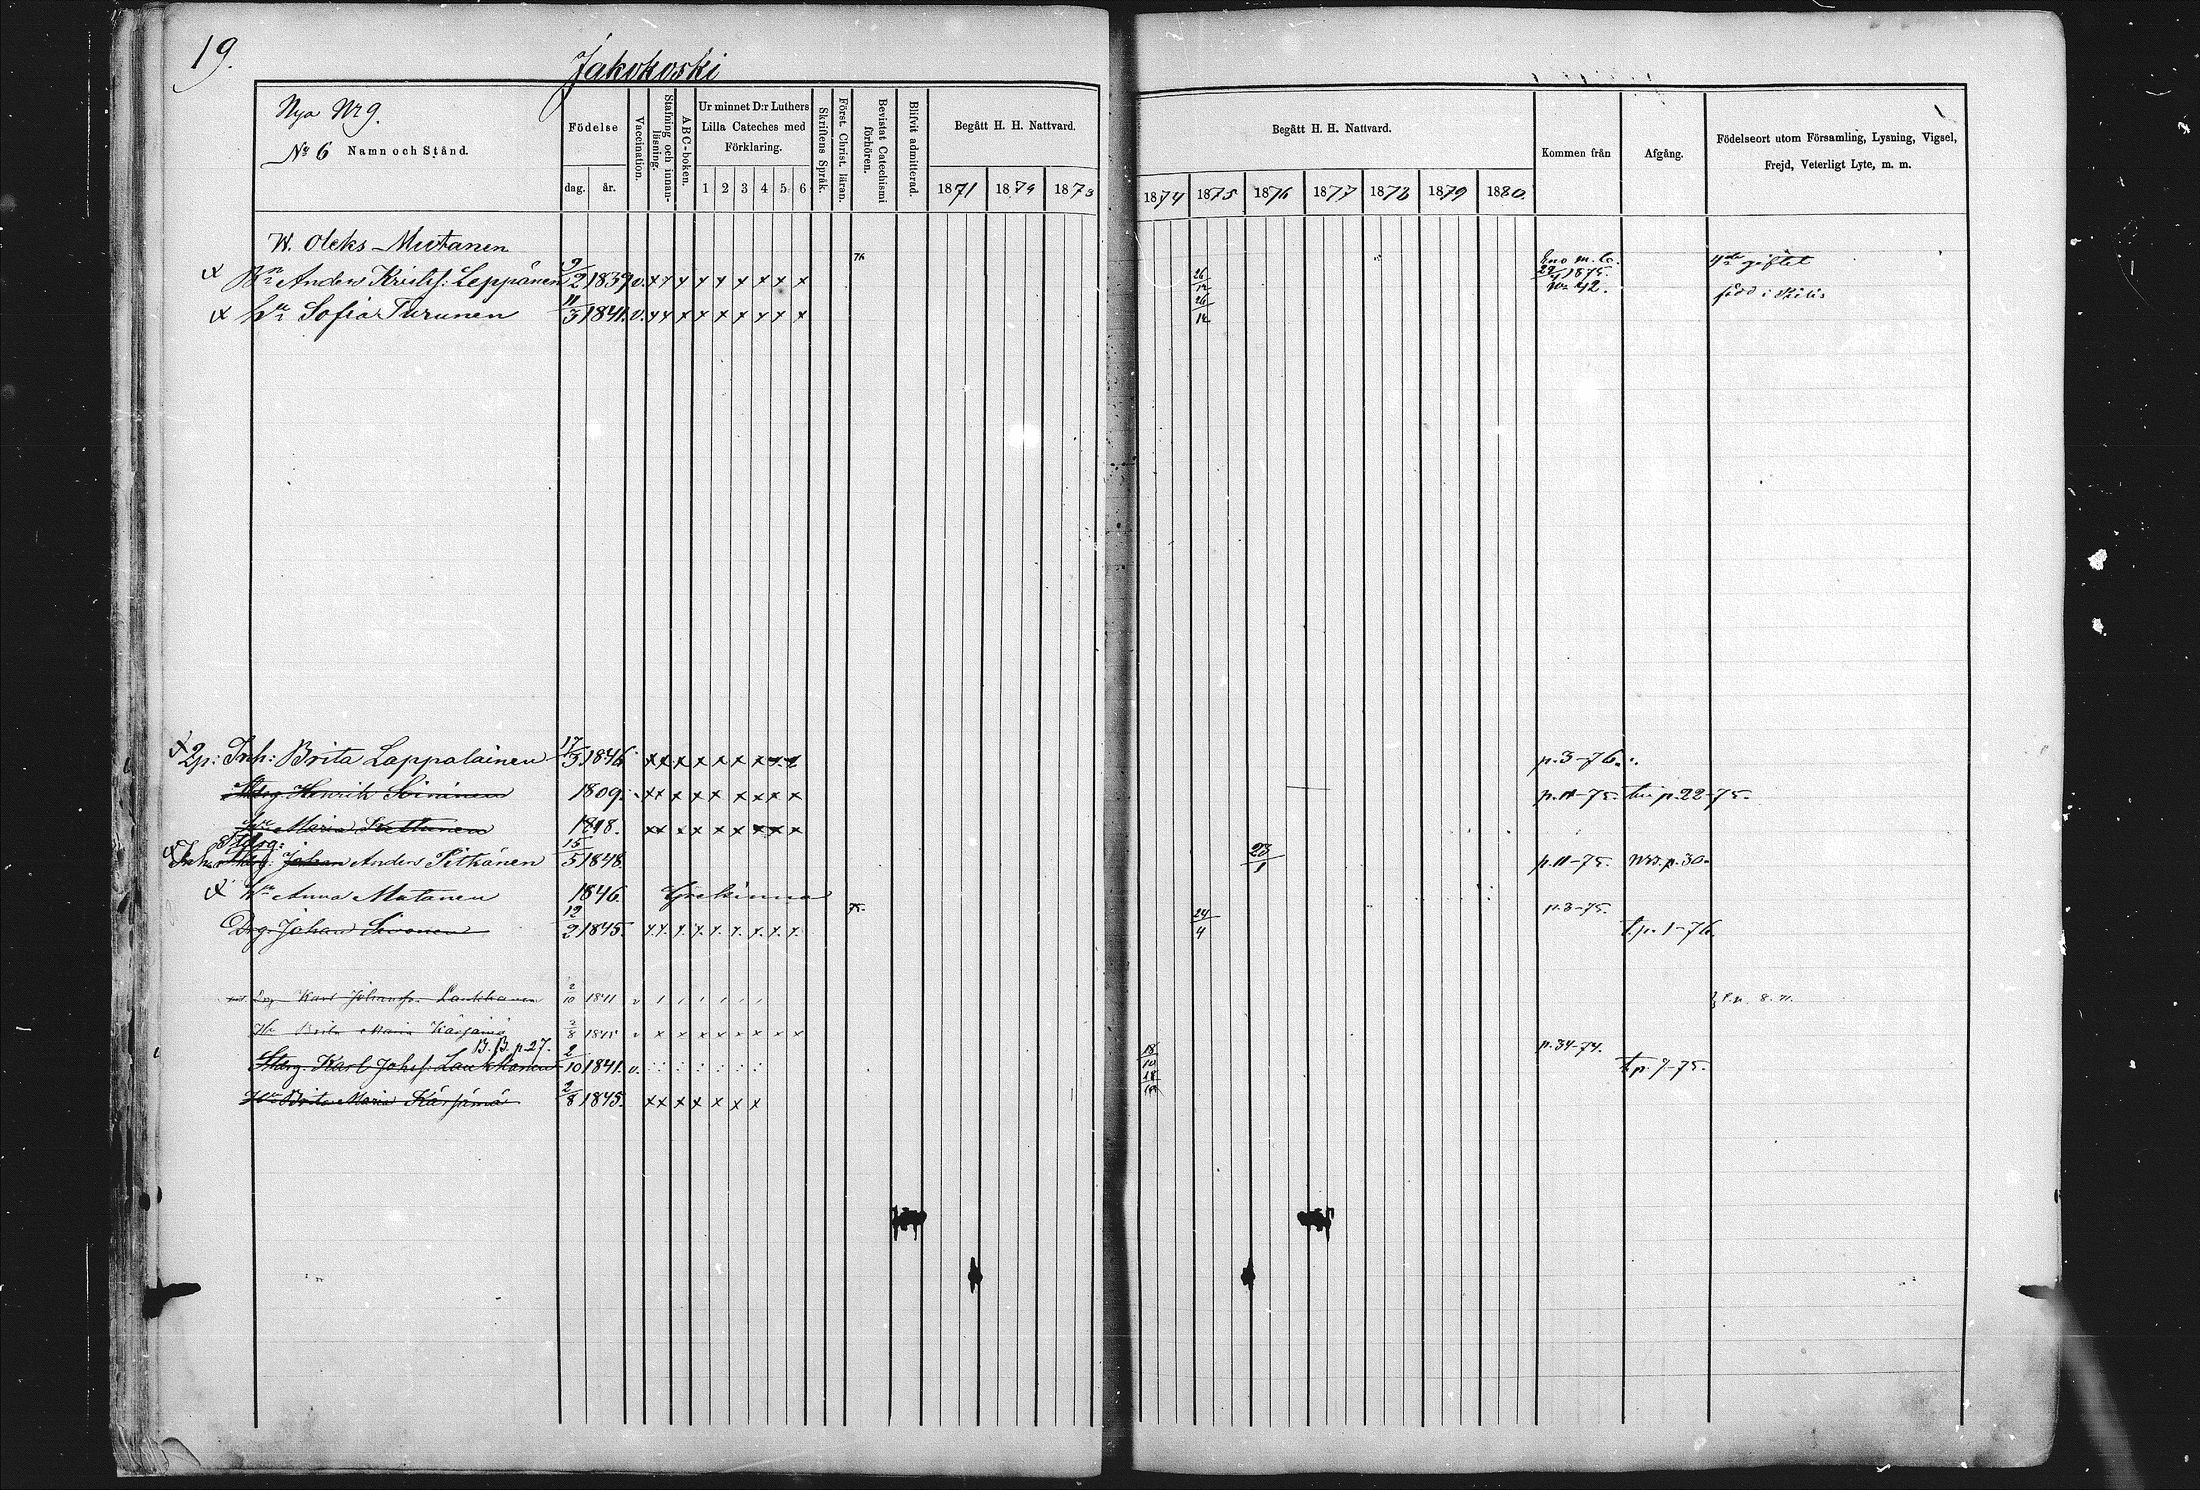 19.
Jakokoski
Nya Nr 9.
No 6 Namn och Stånd.
Födelse
dag. år.
Vaccination.
Stafning och innanläsning.
ABC-boken.
Ur minnet D:r Luthers Lilla Cateches med Förklaring.
1 2 3 4 5 6
Skriftens Språk.
Först. Christ. läran.
Bevistat Catechismi förhören.
Blifvit admitterad.
Begått H. H. Nattvard.
1871 1872 1873
Begått H. H. Nattvard.
1874 1875 1876 1877 1878 1879 1880.
Kommen från
Afgång.
Födelseort utom Församling, Lysning, Vigsel, Frejd, Veterligt Lyte, m. m.
W. Oleks Mutanen
Anders Leppänen 9/2 1839 v. x x x x x x x x x 76 26/12 Eno m. b. 1875. No 42. giftet
Hu Sofia Turunen 11/3 1841. v. x x x x x x x x x 26/12 född i
Inh: Brita Lappalainen 17/3 1846 x x x x x x x p. 3-76.
Henrik 1809. x x x x x x x x x p. 11-75. p. 22-75.
Hu Maria 1818. x x x x x x x x x
Johan Anders Pitkänen 15/5 1848. 23/1 p. 11-75. p. 30.
Hu Anna Mutanen 1846. Grekinna
Drg. Johan Sivonen 12/2 1845. 75. 24/4 p. 3-75. t. p. 1-76.
Karl Johansp. Laukkanen 2/10 1841 v
Hu Brita Maria Kärjämä 2/8 1845 v x x x x x x x x x
B. B. p. 27.
Karl Johsf: Laukkanen 2/10 1841. v. 18/10 p. 34-74. t. p. 7-75.
Hu Brita Maria Kärjämä 2/8 1845. x x x x x x x 18/10